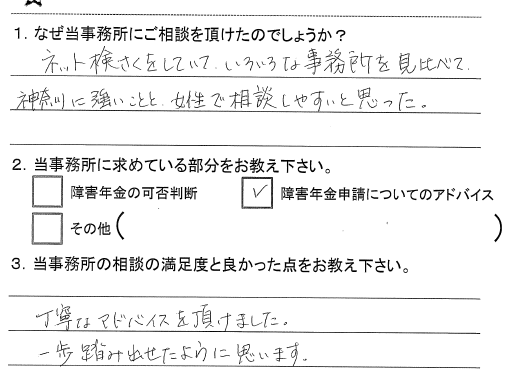 1. なぜ当事務所にご相談を頂けたのでしょうか？
ネット検さくをしていて、いろいろな事務所を見比べて、
神奈川に強いことと、女性で相談しやすいと思った。
2. 当事務所に求めている部分をお教え下さい。
障害年金の可否判断 ✓ 障害年金申請についてのアドバイス
その他（ ）
3. 当事務所の相談の満足度と良かった点をお教え下さい。
丁寧なアドバイスを頂けました。
一歩踏み出せたように思います。